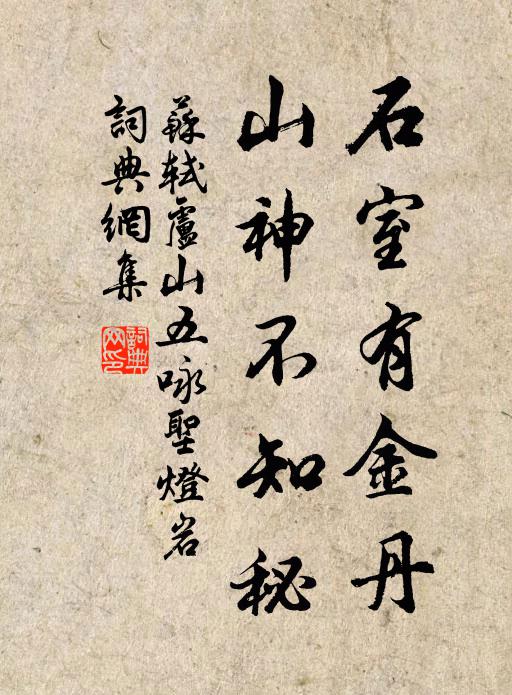 石室有金丹
山神不知秘
蘇軾盧山五咏聖燈岩
詞典網集
詞典
网印